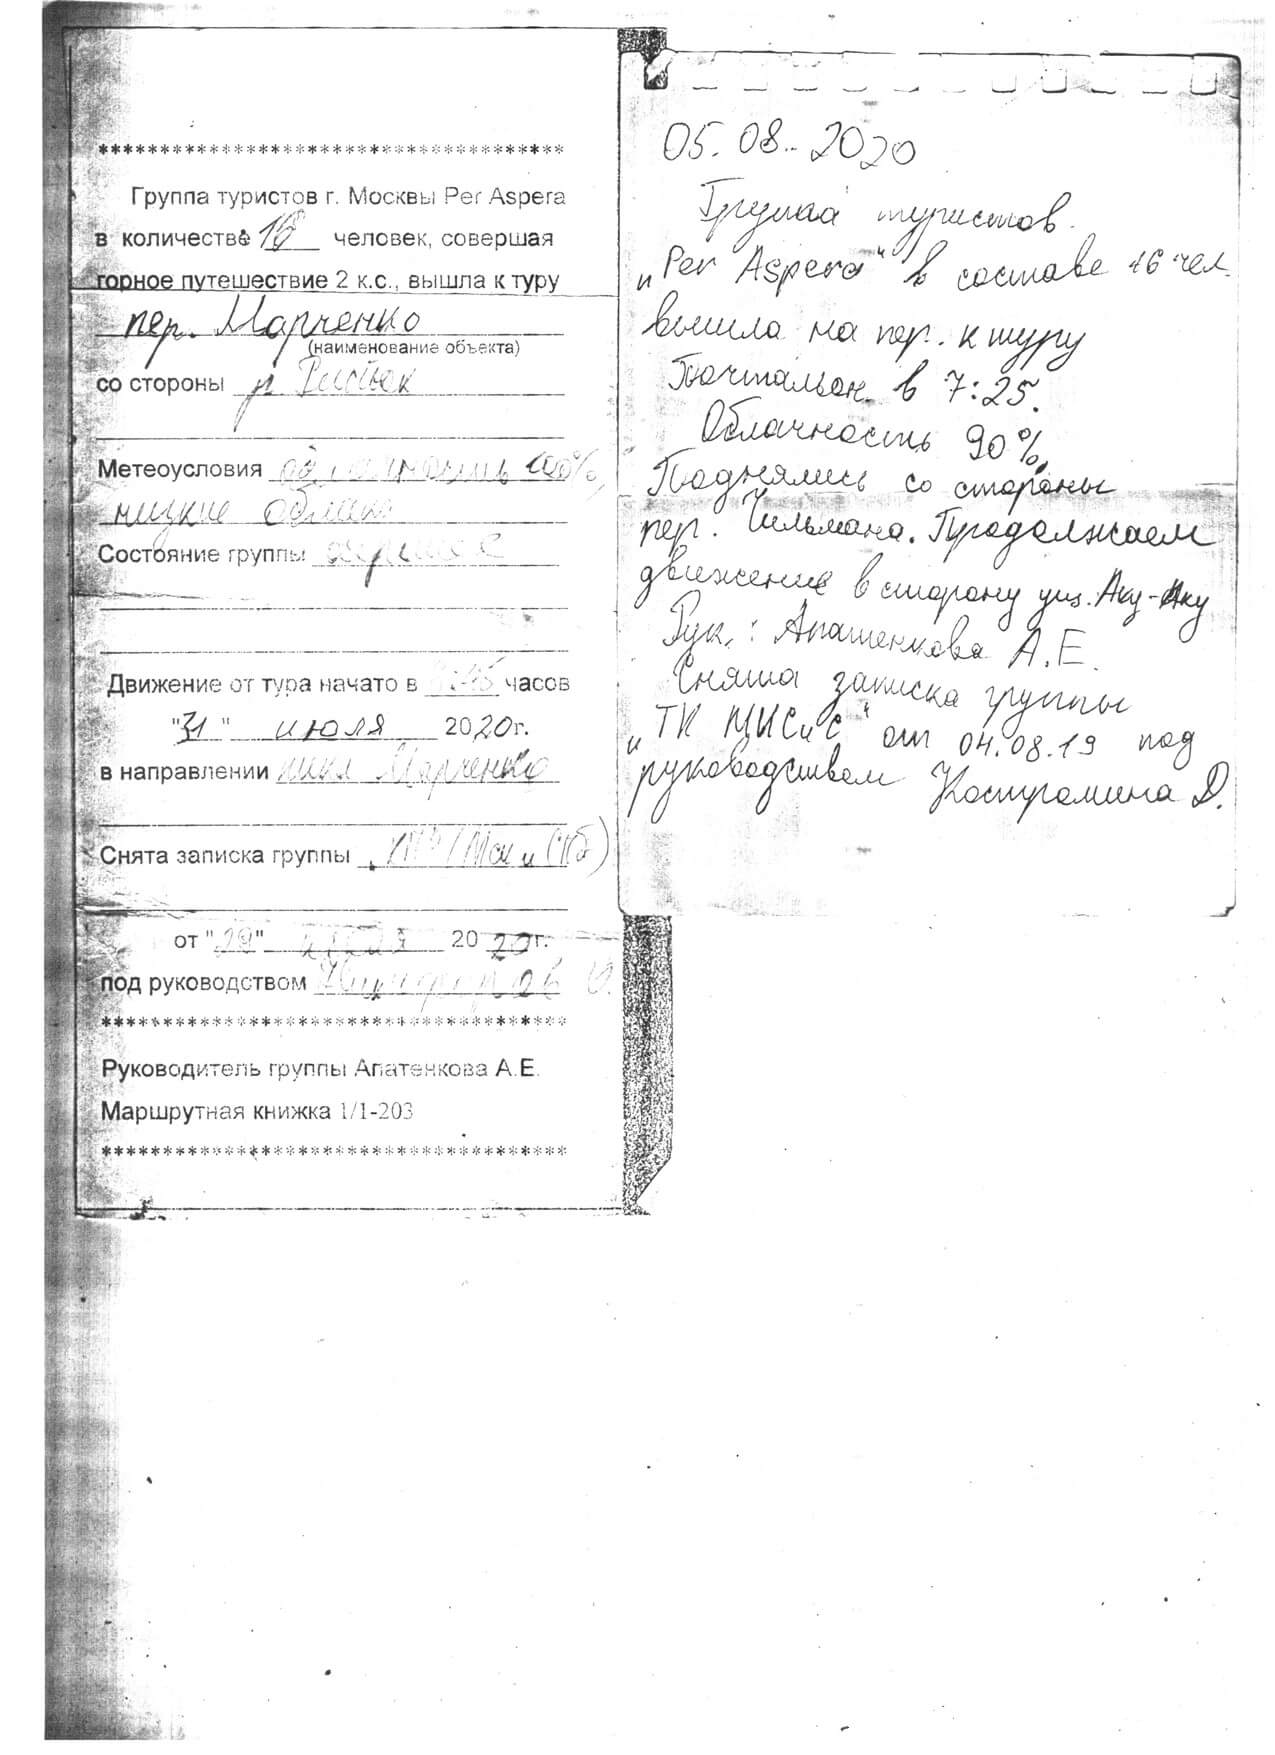 ***************************************
Группа туристов г. Москвы Per Aspera
в количестве человек, совершая
горное путешествие 2 к.с., вышла к туру
пер. Марченко
(наименование объекта)
со стороны р.
Метеоусловия облачность 100%,
низкие облака
Состояние группы хорошее
Движение от тура начато в часов
"31" июля 2020г.
в направлении пика Марченко
Снята записка группы
от "29" 2020г.
под руководством
***************************************
Руководитель группы Апатенкова А.Е.
Маршрутная книжка 1/1-203
***************************************
05.08.2020
Группа туристов
"Per Aspera" в составе 16 чел.
вышла на пер. к туру
Почтальон в 7:25.
Облачность 90%.
Поднялись со стороны
пер. Чильмана. Продолжаем
движение в сторону ущ. Аку-Аку
Рук.: Апатенкова А.Е.
Снята записка группы
"ТК МИСиС" от 04.08.19 под
руководством Костромина Д.